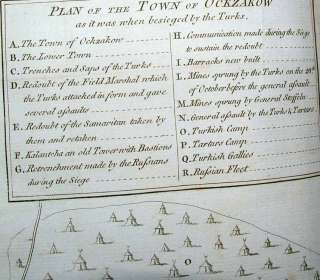 PLAN OF THE TOWN OF OCKZAKOW
as it was when besieged by the Turks.
A. The Town of Ockzakow
B. The Lower Town
C. Trenches and Saps of the Turks
D. Redoubt of the Field Marshal which
the Turks attacked in form and gave
several assaults
E. Redoubt of the Samaritan taken by
them and retaken
F. Kalantcha an old Tower with Bastions
G. Retrenchment made by the Russians
during the Siege
H. Communication made during the Siege
to sustain the redoubt
I. Barracks new built
L. Mines sprung by the Turks on the 28th
of October before the general assault
M. Mines sprung by General Stoffeln
N. General assault by the Turks & Tartars
O. Turkish Camp
P. Tartars Camp
Q. Turkish Gallies
R. Russian Fleet
O